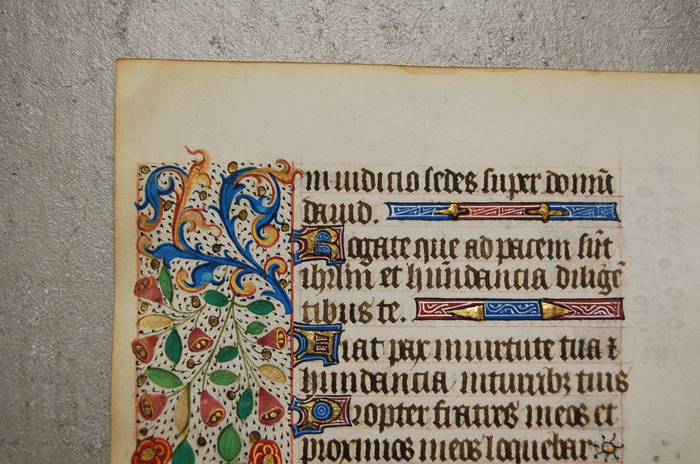 in iudicio sedes super domū
dauid.
Rogate que ad pacem sūt
ihrlm̄ et habundancia diligē
tibus te.
Fiat pax in uirtute tua ⁊
habundancia in turribꝫ tuis
Propter fratres meos et
proximos meos loquebar